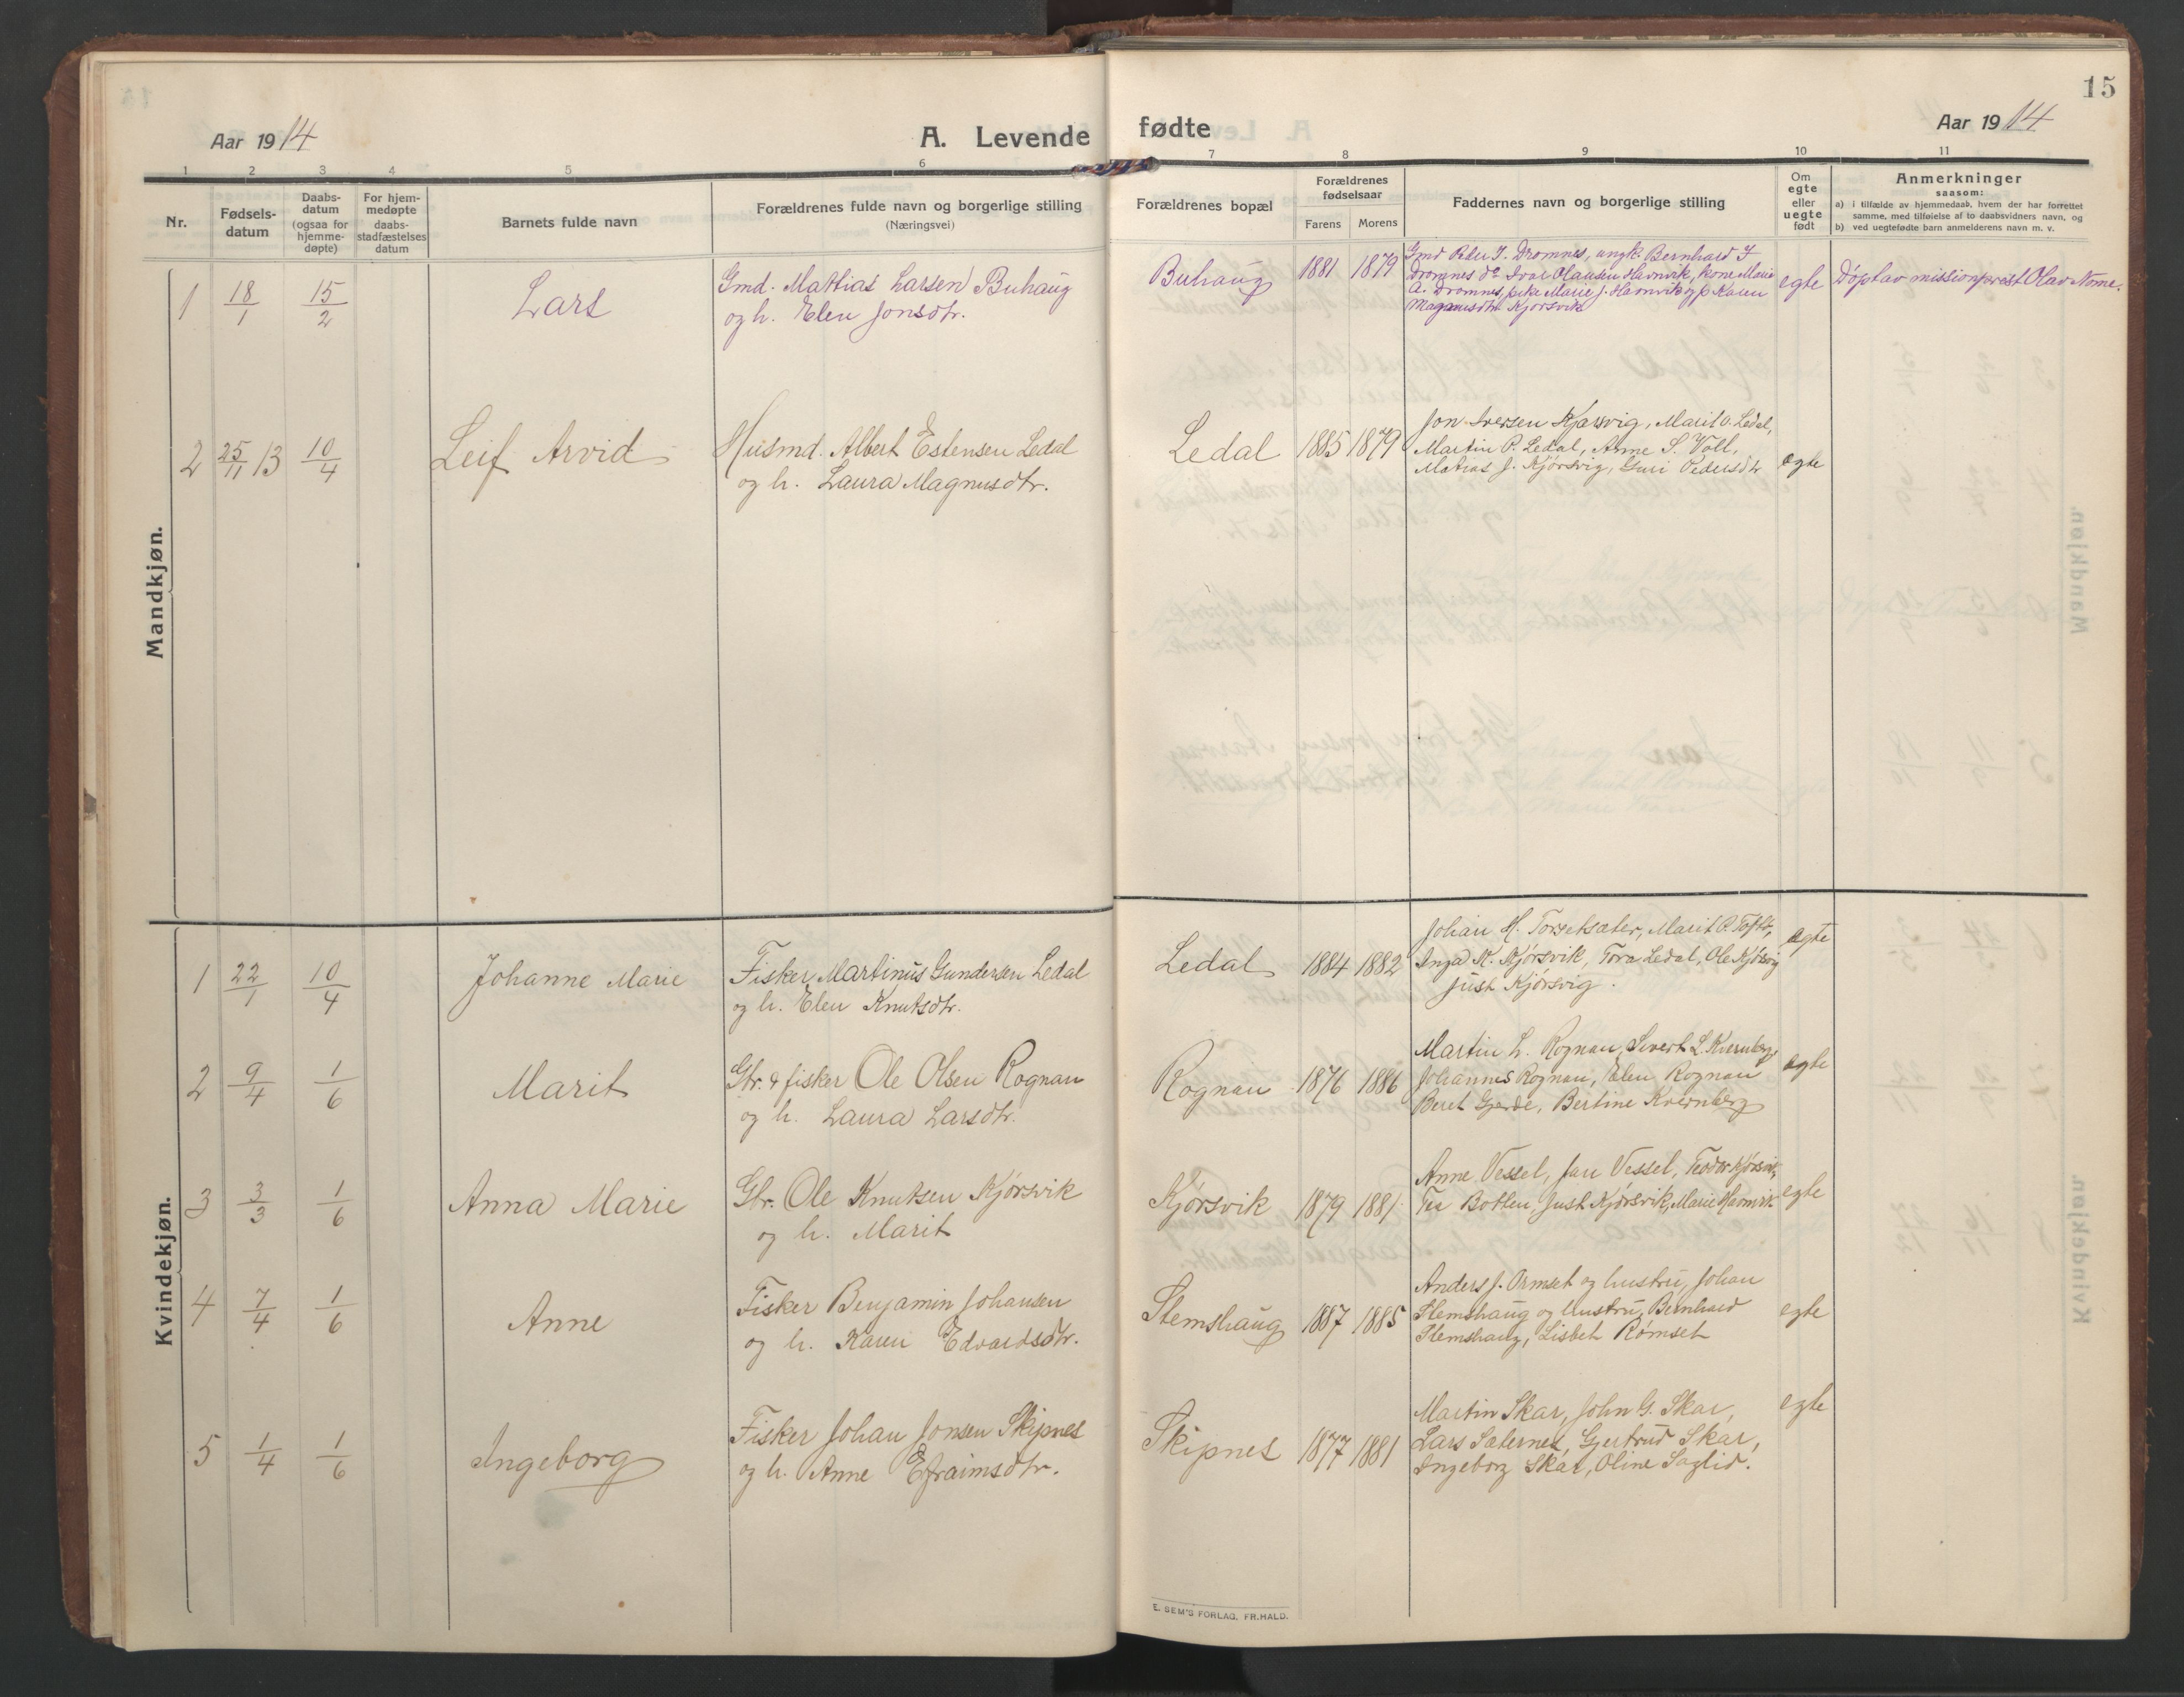 15
Aar 1914
A. Levende fødte
Aar 1914
1 2 3 4 5 6 7 8 9 10 11
Nr.
Fødsels-
datum
Daabs-
datum
(ogsaa for
hjemme-
døpte)
For hjem-
medøpte
daabs-
stadfæstelses
datum
Barnets fulde navn
Forældrenes fulde navn og borgerlige stilling
(Næringsvei)
Forældrenes bopæl
Forældrenes
fødselsaar
Farens Morens
Faddernes navn og borgerlige stilling
Om
egte
eller
uegte
født
Anmerkninger
saasom:
a) i tilfælde av hjemmedaab, hvem der har forrettet
samme, med tilføielse af to daabsvidners navn, og
b) ved uegtefødte barn anmelderens navn m. v.
Mandkjøn.
1 18/1 15/2 Lars
Gmd. Mathias Larsen Buhaug
og h. Elen Jonsdtr.
Buhaug 1881 1879
Gmd Peter J. Dromnes, ungk. Bernhard J
Dromnes do Ivar Olausen Havnvik, kone Marie
A. Dromnes, pike Marie J. Havnvik og p Karen
Magnusdtr Kjørsvik
egte
Døpt av missionsprest Olav Nome.
2 25/11 13 10/4 Leif Arvid
Husmd. Albert Estensen Ledal
og h. Laura Magnusdtr.
Ledal 1885 1879
Jon Iversen Kjørsvig, Marit O. Ledal,
Martin P. Ledal, Anne S. Voll,
Matias J. Kjørsvig, Guri Pedersdtr
egte
Kvindekjøn.
1 22/1 10/4 Johanne Marie
Fisker Martinus Gundersen Ledal
og h. Elen Knutsdtr.
Ledal 1884 1882
Johan H. Torsetsæter, Marit P. Toft,
Inga K. Kjørsvik, Tora Ledal, Ole Kjørsvig
Just Kjørsvig.
egte
2 9/4 1/6 Marit
Gbr. & fisker Ole Olsen Rognan
og h. Laura Larsdtr.
Rognan 1876 1886
Martin L. Rognan, Sivert L. Kvernberg,
Johannes Rognan, Elen Rognan
Beret Gjerde, Bertine Kvernberg
egte
3 3/3 1/6 Anna Marie
Gbr. Ole Knutsen Kjørsvik
og h. Marit
Kjørsvik 1879 1881
Anne Vessel, Jan Vessel, Teodor Kjørsvik,
Botten, Just Kjørsvik, Marie Havnvik
egte
4 7/4 1/6 Anne
Fisker Benjamin Johansen
og h. Karen Edvardsdtr.
Stemshaug 1887 1885
Anders J. Ormset og hustru, Johan
Stemshaug og hustru, Bernhard
Stemshaug, Lisbet Rømset
egte
5 1/4 1/6 Ingeborg
Fisker Johan Jonsen Skipnes
og h. Anne Efraimsdtr.
Skipnes 1877 1881
Martin Skar, John G. Skar,
Lars Sæternes, Gjertrud Skar,
Ingeborg Skar, Oline Saglid.
egte
E. SEM'S FORLAG, FR.HALD.